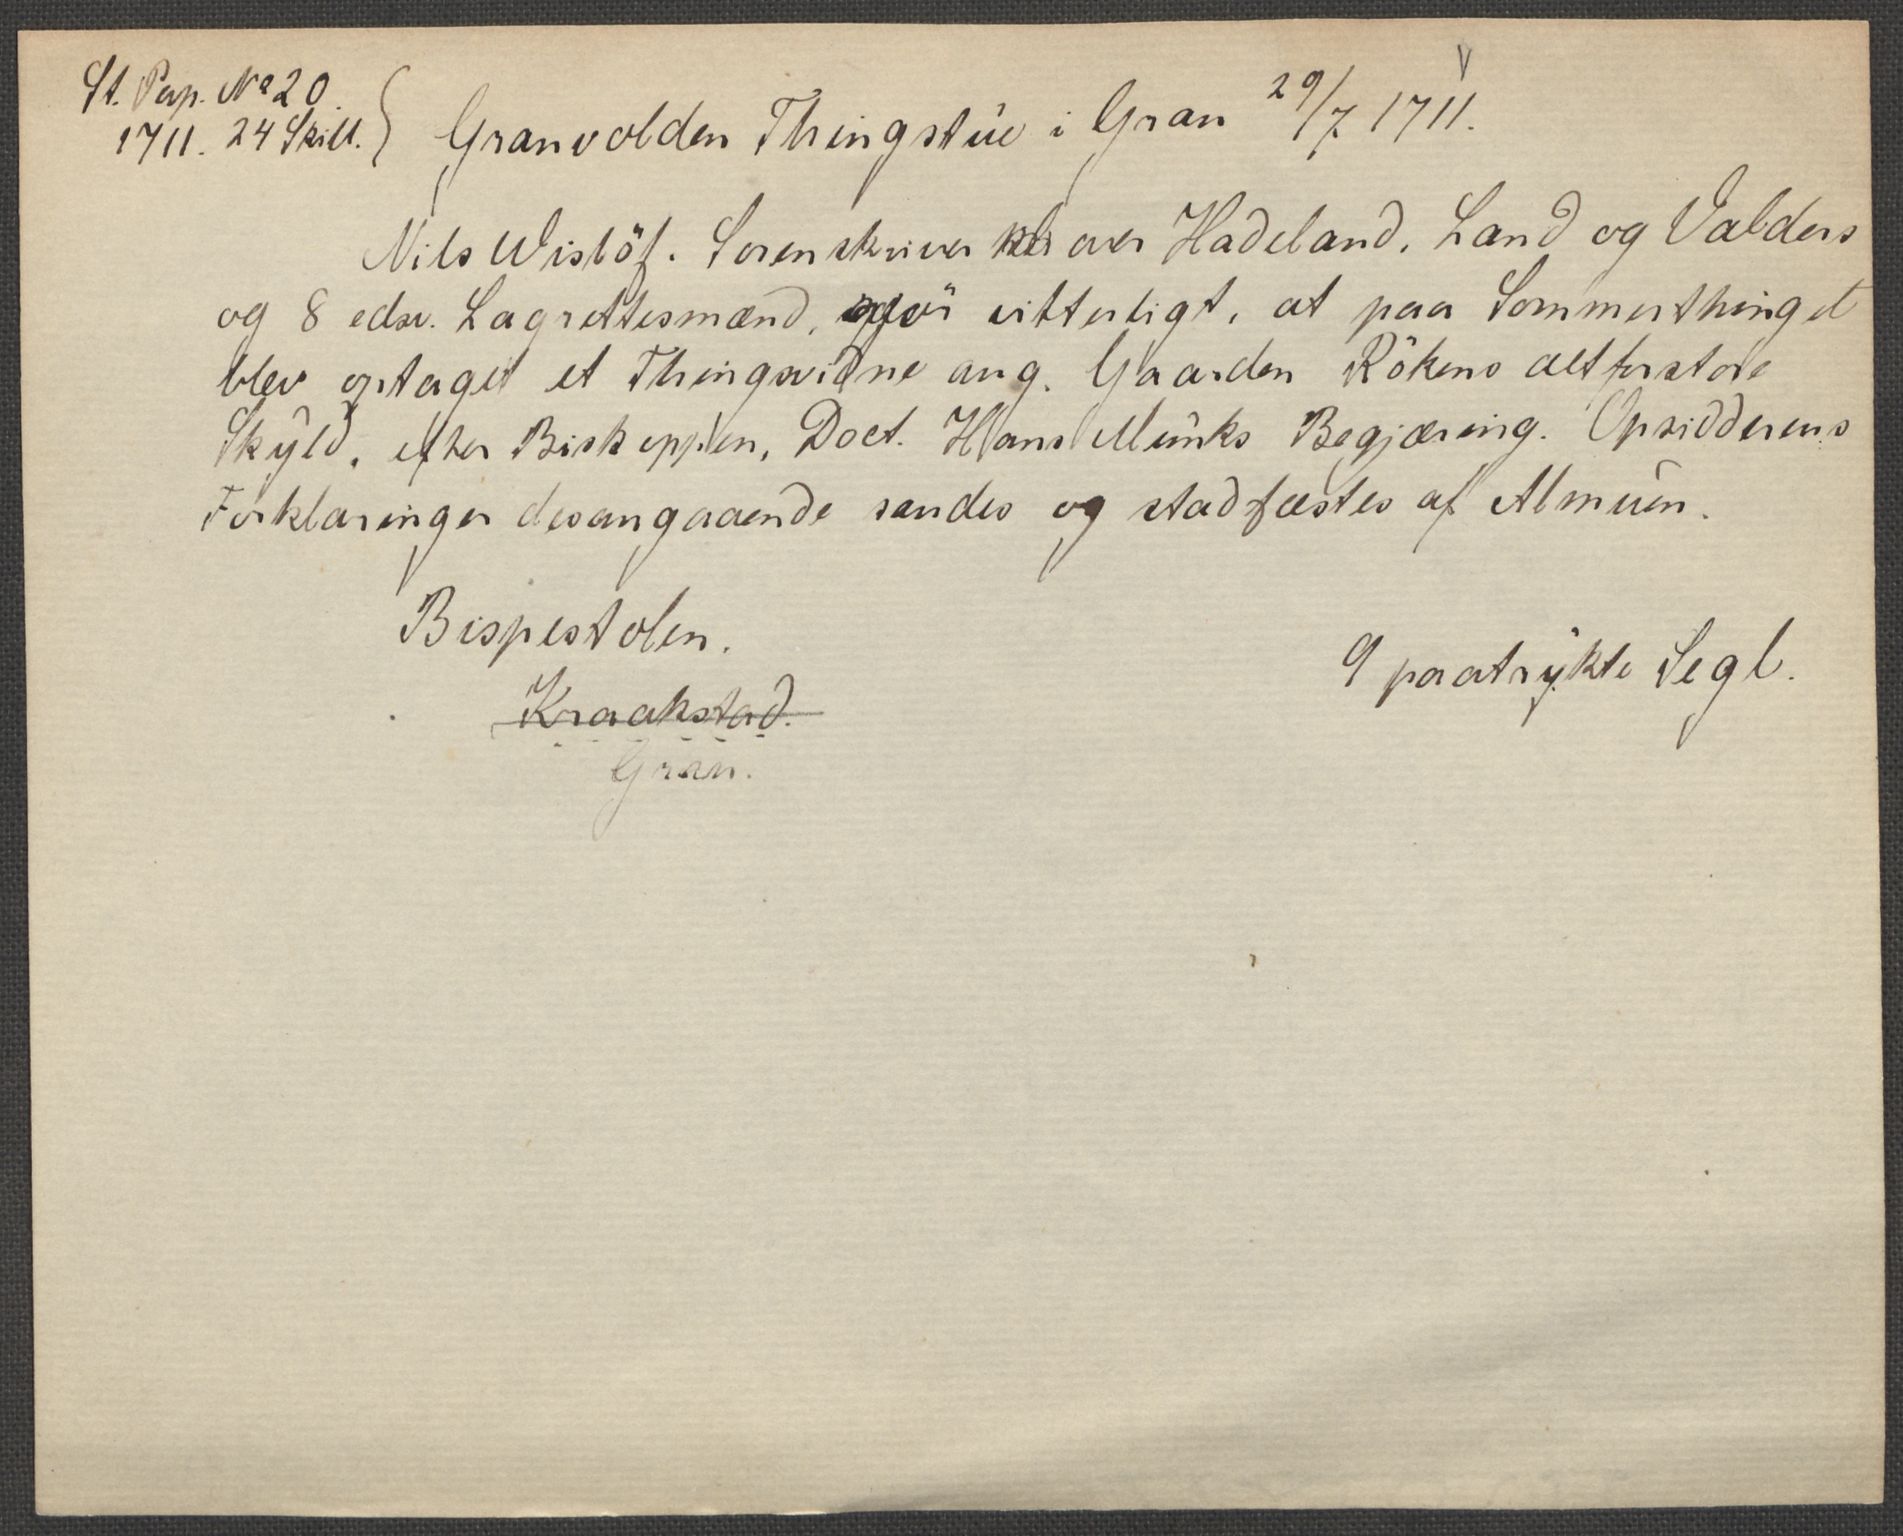 St. Pap. No 20.
1711. 24 Skill.
Granvolden Thingstue i Gran 29/7 1711.
Nils Wislöf. Sorenskriver over Hadeland, Land og Valders
og 8 edsv. Lagrettesmænd, gjör vitterligt, at paa Sommerthinget
blev optaget et Thingsvidne ang. Gaarden Rökens altforstore
Skyld, efter Biskoppen, Doct. Hans Munks Begjæring. Opsidderens
Forklaringer desangaaende sandes og stadfæstes af Almuen.
Bispestolen.
9 paatrykte Segl.
Kraakstad.
Gran.